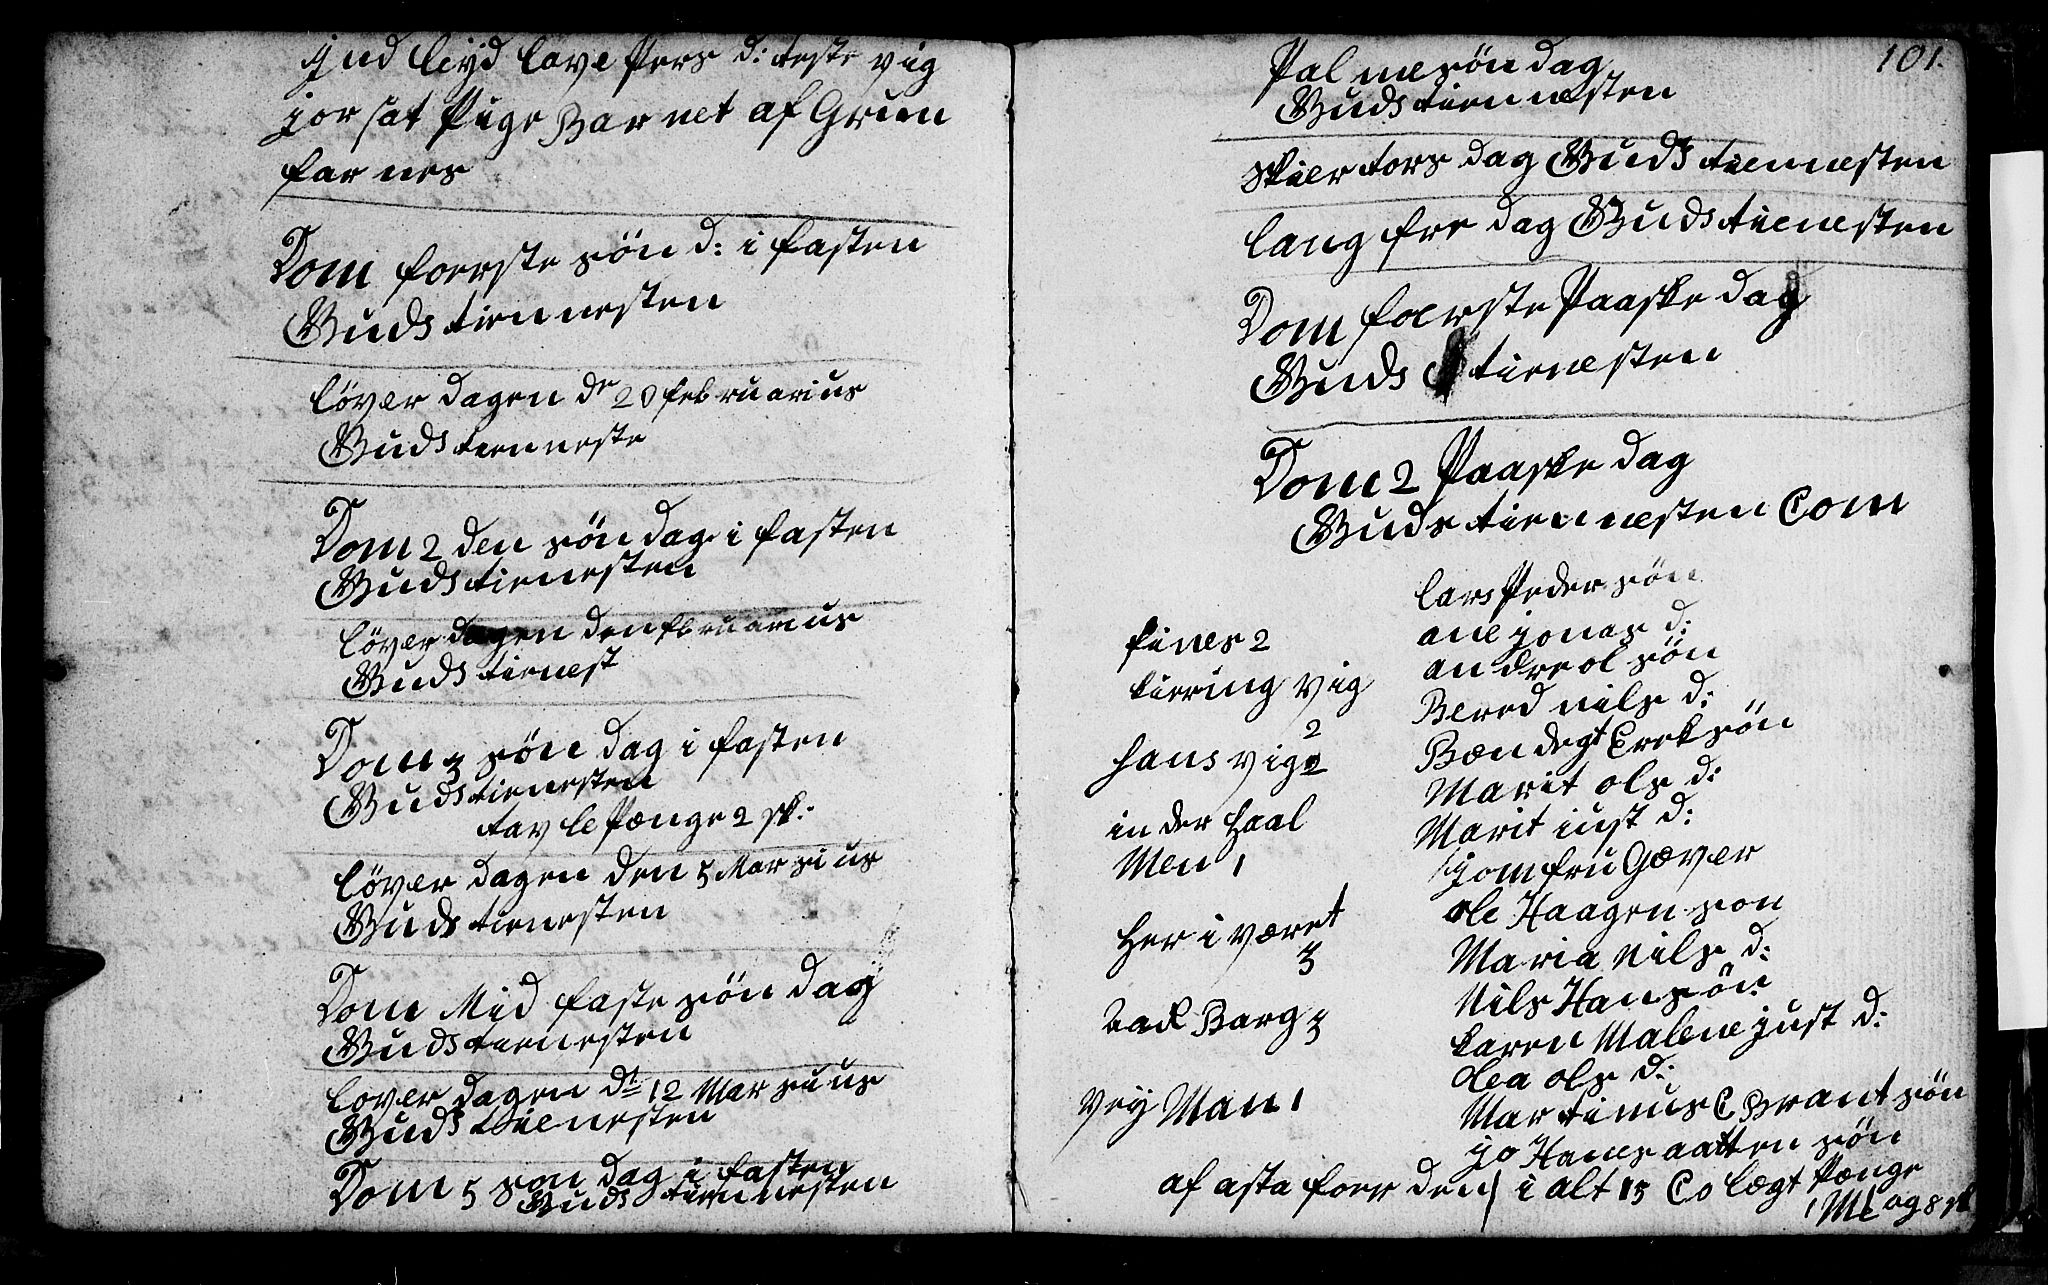 ynd leyd lave Pers d: teste vig
jor sat Pige Barnet af Grun
farnes
Dom foerste søn d: i fasten
Guds tiennesten
løverdagen dn 20 februarius
Guds tienneste
Dom 2 den søndag i fasten
Guds tienesten
løverdagen den februarius
Guds tienest
Dom 3 søndag i fasten
Guds tienesten
tavle Pænge 2 sk:
løverdagen den 5 Marsius
Guds tienesten
Dom Mid faste søndag
Guds tienesten
løverdagen dn 12 Marsius
Guds tienesten
Dom 5 søndag i fasten
Guds tiennesten
101.
Palmesøndag
Guds tiennesten
Skiertorsdag Guds tiennesten
langfredag Guds tienesten
Dom foerste Paaske dag
Guds tienesten
Dom 2 Paaske dag
Guds tiennesten Com
fines 2
kierringvig
2
hansvig 2
inder haal
Men 1
her i været
3
bak Barg 3
vey Man 1
lars Pedersøn
ane jonas d:
andre olsøn
Bered nils d:
Bændegt Ereksøn
Marit ols d:
Marit iust d:
jomfru Gæver
ole Haagenson
Maria nils d:
Nils Hansøn
karen Malene just d:
olea ols d:
Martinus C Brantsøn
jo Hanes aattensøn
af asta foer den i alt 15 Colægt Pænge
1 Mk og 8 sk